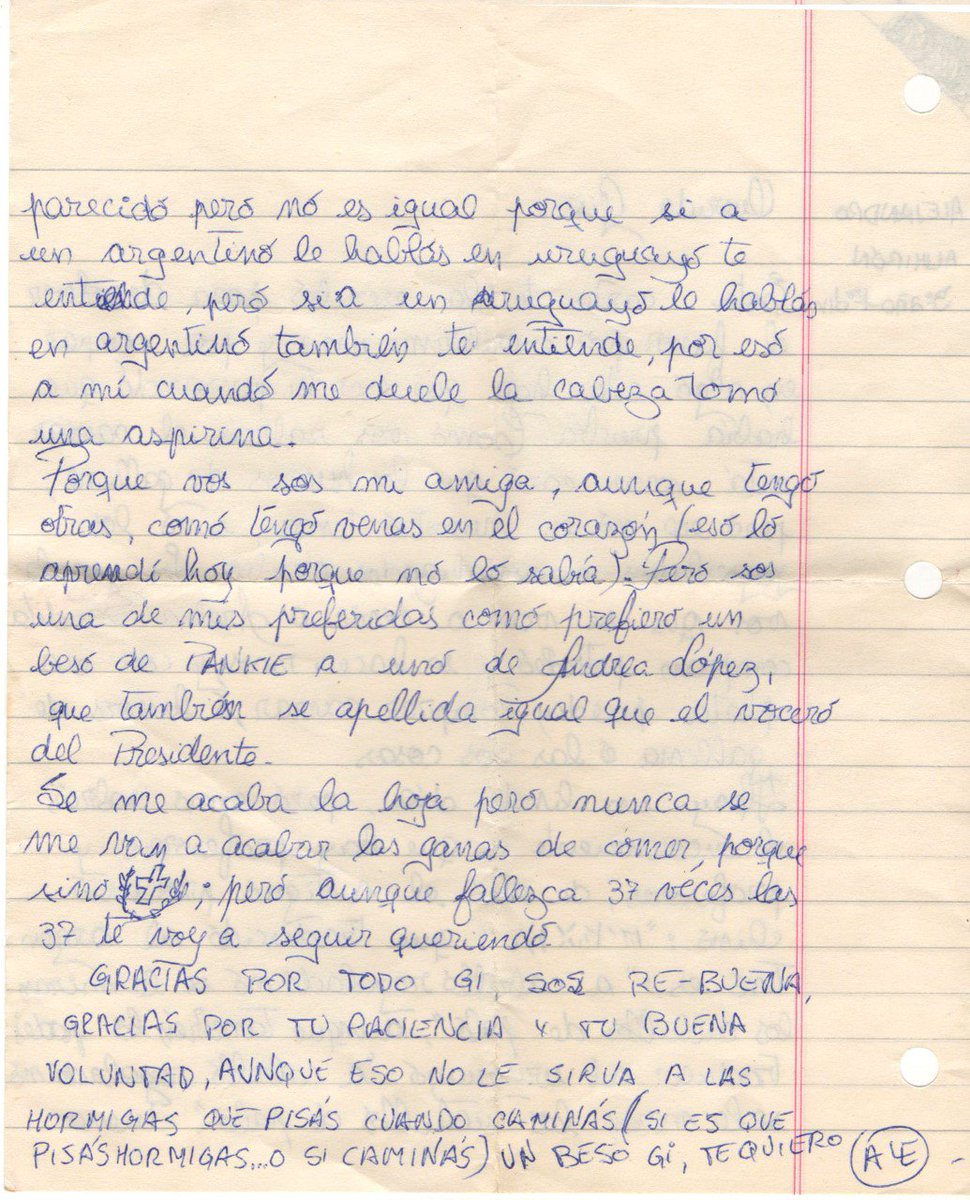 parecido pero no es igual porque si a
un argentino le hablás en uruguayo te
entiende, pero si a un uruguayo le hablás
en argentino también te entiende, por eso
a mí cuando me duele la cabeza tomo
una aspirina.
Porque vos sos mi amiga, aunque tengo
otras, como tengo venas en el corazón (eso lo
aprendí hoy porque no lo sabía). Pero sos
una de mis preferidas como prefiero un
beso de PANKIE a uno de Andrea López,
que también se apellida igual que el vocero
del Presidente.
Se me acaba la hoja pero nunca se
me van a acabar las ganas de comer, porque
sino ; pero aunque fallezca 37 veces las
37 te voy a seguir queriendo.
GRACIAS POR TODO GI, SOS RE-BUENA,
GRACIAS POR TU PACIENCIA Y TU BUENA
VOLUNTAD, AUNQUE ESO NO LE SIRVA A LAS
HORMIGAS QUE PISÁS CUANDO CAMINÁS (SI ES QUE
PISÁS HORMIGAS...O SI CAMINÁS) UN BESO GI, TE QUIERO ALE -
ALEJANDRO